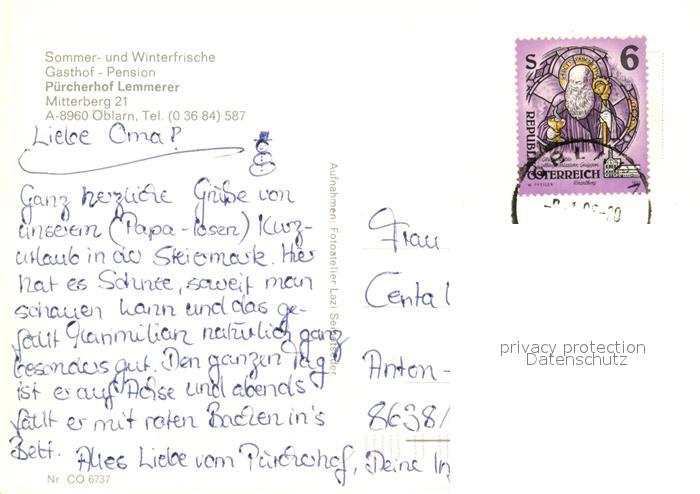 Sommer- und Winterfrische
Gasthof - Pension
Pürcherhof Lemmerer
Mitterberg 21
A-8960 Öblarn, Tel. (0 36 84) 587
Liebe Oma!
Ganz herzliche Grüße von
unserem (Papa-losen) Kurz-
urlaub in der Steiermark. Hier
hat es Schnee, soweit man
schauen kann und das ge-
fällt Maximilian natürlich ganz
besonders gut. Den ganzen Tag
ist er auf Achse und abends
fällt er mit roten Backen in's
Bett. Alles Liebe vom Pürcherhof, Deine
Nr. CO 6737
Aufnahmen: Fotoatelier Lazi
S 6
REPUBLIK
ÖSTERREICH
Frau
Centa
Anton-
8638/
privacy protection
Datenschutz